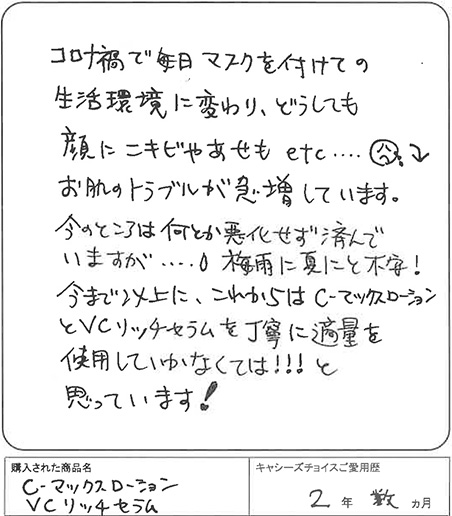 コロナ禍で毎日マスクを付けての
生活環境に変わり、どうしても
顔にニキビやあせも etc‥‥
お肌のトラブルが急増しています。
今のところは何とか悪化せず済んで
いますが‥‥。梅雨に夏にと不安!
今まで以上に、これからはC-マックスローション
とVCリッチセラムを丁寧に適量を
使用していかなくては!!!と
思っています!
購入された商品名
C-マックスローション
VCリッチセラム
キャシーズチョイスご愛用歴
2年 数ヵ月